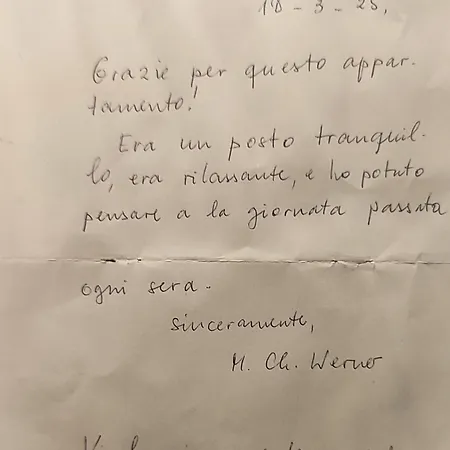 18 - 3 - 25,
Grazie per questo appar-
tamento!
Era un posto tranquil-
lo, era rilassante, e ho potuto
pensare a la giornata passata
ogni sera.
sinceramente,
M. Ch. Werner